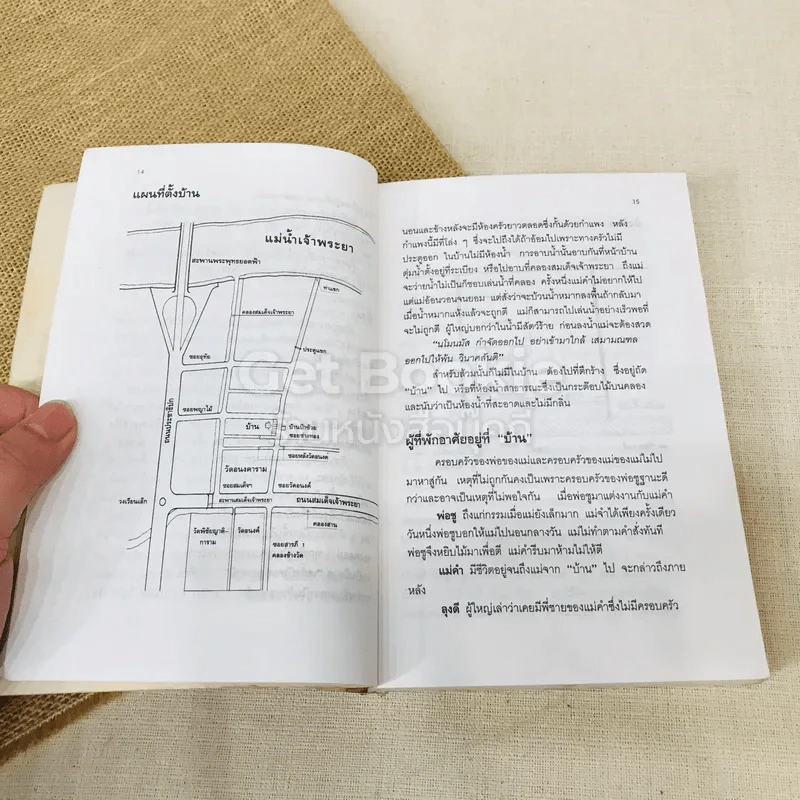 14
แผนที่ตั้งบ้าน
แม่น้ำเจ้าพระยา
สะพานพระพุทธยอดฟ้า
ท่าแขก
คลองสมเด็จเจ้าพระยา
ประตูแขก
ซอยอุทัย
ถนนประชาธิปก
ซอยพญาไม้
บ้าน
บ้านป้าช้วย
ซอยช่างทอง
ซอยหลังวัดอนงค์
วัดอนงคาราม
ซอยสมเด็จฯ
ซอยวัดอนงค์
วงเวียนเล็ก
สะพานสมเด็จเจ้าพระยา
ถนนสมเด็จเจ้าพระยา
คลองสาน
วัดพิชัยญาติ-
การาม
วัดอนงค์
ซอยสารภี 1
คลองข้างวัด
15
นอนและข้างหลังจะมีห้องครัวยาวตลอดซึ่งกั้นด้วยกำแพง หลัง
กำแพงนี้มีที่โล่ง ๆ ซึ่งจะไปถึงได้ถ้าอ้อมไปเพราะทางครัวไม่มี
ประตูออก ในบ้านไม่มีห้องน้ำ การอาบน้ำนั้นอาบกันที่หน้าบ้าน
ตุ่มน้ำตั้งอยู่ที่ระเบียง หรือไปอาบที่คลองสมเด็จเจ้าพระยา ถึงแม่
จะว่ายน้ำไม่เป็นก็ชอบเล่นน้ำที่คลอง ครั้งหนึ่งแม่คำไม่อยากให้ไป
แต่แม่อ้อนวอนจนยอม แต่สั่งว่าจะบ้วนน้ำหมากลงพื้นถ้ากลับมา
เมื่อน้ำหมากแห้งแล้วจะถูกตี แม่ก็สามารถไปเล่นน้ำอย่างเร็วพอที่
จะไม่ถูกตี ผู้ใหญ่บอกว่าในน้ำมีสัตว์ร้าย ก่อนลงน้ำแม่จะต้องสวด
"นโมนมัส กำจัดออกไป อย่าเข้ามาใกล้ เสมามณฑล
ออกไปให้พ้น รินาคสันติ"
สำหรับส้วมนั้นก็ไม่มีในบ้าน ต้องไปที่ตึกร้าง ซึ่งอยู่ถัด
"บ้าน" ไป หรือที่ห้องน้ำสาธารณะซึ่งเป็นกระต๊อบไม้บนคลอง
และนับว่าเป็นห้องน้ำที่สะอาดและไม่มีกลิ่น
ผู้ที่พักอาศัยอยู่ที่ "บ้าน"
ครอบครัวของพ่อของแม่และครอบครัวของแม่ของแม่ไม่ไป
มาหาสู่กัน เหตุที่ไม่ถูกกันคงเป็นเพราะครอบครัวของพ่อชูฐานะดี
กว่าและอาจเป็นเหตุที่ไม่พอใจกัน เมื่อพ่อชูมาแต่งงานกับแม่คำ
พ่อชู ถึงแก่กรรมเมื่อแม่ยังเล็กมาก แม่จำได้เพียงครั้งเดียว
วันหนึ่งพ่อชูบอกให้แม่ไปนอนกลางวัน แม่ไม่ทำตามคำสั่งทันที
พ่อชูจึงหยิบไม้มาเพื่อตี แม่คำรีบมาห้ามไม่ให้ตี
แม่คำ มีชีวิตอยู่จนถึงแม่จาก "บ้าน" ไป จะกล่าวถึงภาย
หลัง
ลุงดี ผู้ใหญ่เล่าว่าเคยมีพี่ชายของแม่คำซึ่งไม่มีครอบครัว
Get Bookie